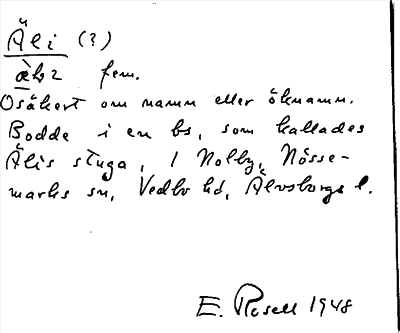 Äli (?)
fem.
Osäkert om namn eller öknamn.
Bodde i en bs, som kallades
Älis stuga, i Nolby, Nösse-
marks sn, Vedbo hd, Älvsborgs l.
E. Rosell 1948